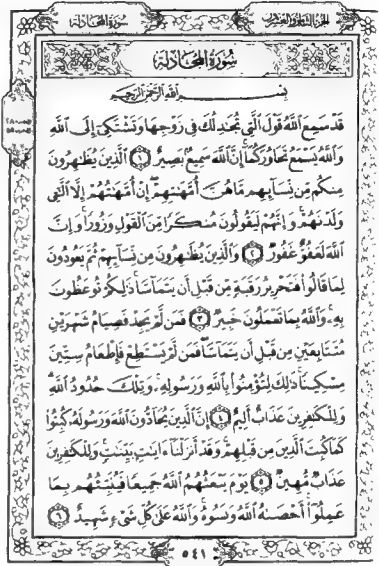 الجزء الثامن والعشرون
سورة المجادلة
سُورَةُ المُجَادلَةِ
بِسْمِ اللَّهِ الرَّحْمَٰنِ الرَّحِيمِ
قَدْ سَمِعَ اللَّهُ قَوْلَ الَّتِي تُجَٰدِلُكَ فِي زَوْجِهَا وَتَشْتَكِي إِلَى اللَّهِ
وَاللَّهُ يَسْمَعُ تَحَاوُرَكُمَا إِنَّ اللَّهَ سَمِيعٌ بَصِيرٌ ١ الَّذِينَ يُظَٰهِرُونَ
مِنكُم مِّن نِّسَآئِهِم مَّا هُنَّ أُمَّهَٰتِهِمْ إِنْ أُمَّهَٰتُهُمْ إِلَّا الَّٰٓـِٔي
وَلَدْنَهُمْ وَإِنَّهُمْ لَيَقُولُونَ مُنكَرًا مِّنَ الْقَوْلِ وَزُورًا وَإِنَّ
اللَّهَ لَعَفُوٌّ غَفُورٌ ٢ وَالَّذِينَ يُظَٰهِرُونَ مِن نِّسَآئِهِمْ ثُمَّ يَعُودُونَ
لِمَا قَالُوا فَتَحْرِيرُ رَقَبَةٍ مِّن قَبْلِ أَن يَتَمَآسَّا ذَٰلِكُمْ تُوعَظُونَ
بِهِ وَاللَّهُ بِمَا تَعْمَلُونَ خَبِيرٌ ٣ فَمَن لَّمْ يَجِدْ فَصِيَامُ شَهْرَيْنِ
مُتَتَابِعَيْنِ مِن قَبْلِ أَن يَتَمَآسَّا فَمَن لَّمْ يَسْتَطِعْ فَإِطْعَامُ سِتِّينَ
مِسْكِينًا ذَٰلِكَ لِتُؤْمِنُوا بِاللَّهِ وَرَسُولِهِ وَتِلْكَ حُدُودُ اللَّهِ
وَلِلْكَٰفِرِينَ عَذَابٌ أَلِيمٌ ٤ إِنَّ الَّذِينَ يُحَآدُّونَ اللَّهَ وَرَسُولَهُ كُبِتُوا
كَمَا كُبِتَ الَّذِينَ مِن قَبْلِهِمْ وَقَدْ أَنزَلْنَآ ءَايَٰتٍ بَيِّنَٰتٍ وَلِلْكَٰفِرِينَ
عَذَابٌ مُّهِينٌ ٥ يَوْمَ يَبْعَثُهُمُ اللَّهُ جَمِيعًا فَيُنَبِّئُهُم بِمَا
عَمِلُوٓا أَحْصَىٰهُ اللَّهُ وَنَسُوهُ وَاللَّهُ عَلَىٰ كُلِّ شَيْءٍ شَهِيدٌ ٦
٥٤١